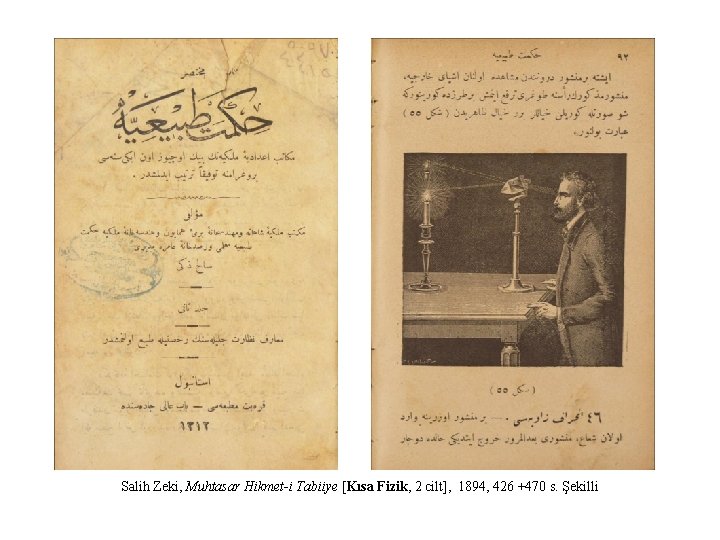 مختصر
حكمت طبيعيه
مكاتب اعداديهٔ ملكيه‌نك بيك اوچيوز اون ايكى سنه‌سى
پروغرامنه توفيقاً ترتيب ايدلمشدر .
مؤلفى
مكتب ملكيهٔ شاهانه ومهندسخانهٔ برىء همايون وهندسه‌خانهٔ ملكيه حكمت
طبيعيه معلمى ورصدخانهٔ عامره مديرى
صالح ذكى
جلد ثانى
معارف نظارت جليله‌سنك رخصتيله طبع اولنمشدر
استانبول
قره‌بت مطبعه‌سى — باب عالى جاده‌سنده
١٣١٢
حكمت طبيعيه ٩٢
ايشته بر منشور دروننـدن مشاهده اولنان اشياى خارجيه،
منشور مذكورك رأسنه طوغرى ترفع ايتمش بر طرزده كورينوركه
شو صورتله كوريلن خياللر برر خيال ظاهريدن (شكل ٥٥)
عبارت بولنور.
(شكل ٥٥)
٤٦ انحراف زاويه‌سى . — بر منشور اوزرينه وارد
اولان شعاع، منشورى بعدالمرور خروج ايتديكى حالده دوچار
Salih Zeki, Muhtasar Hikmet-i Tabiiye [Kısa Fizik, 2 cilt], 1894, 426 +470 s. Şekilli